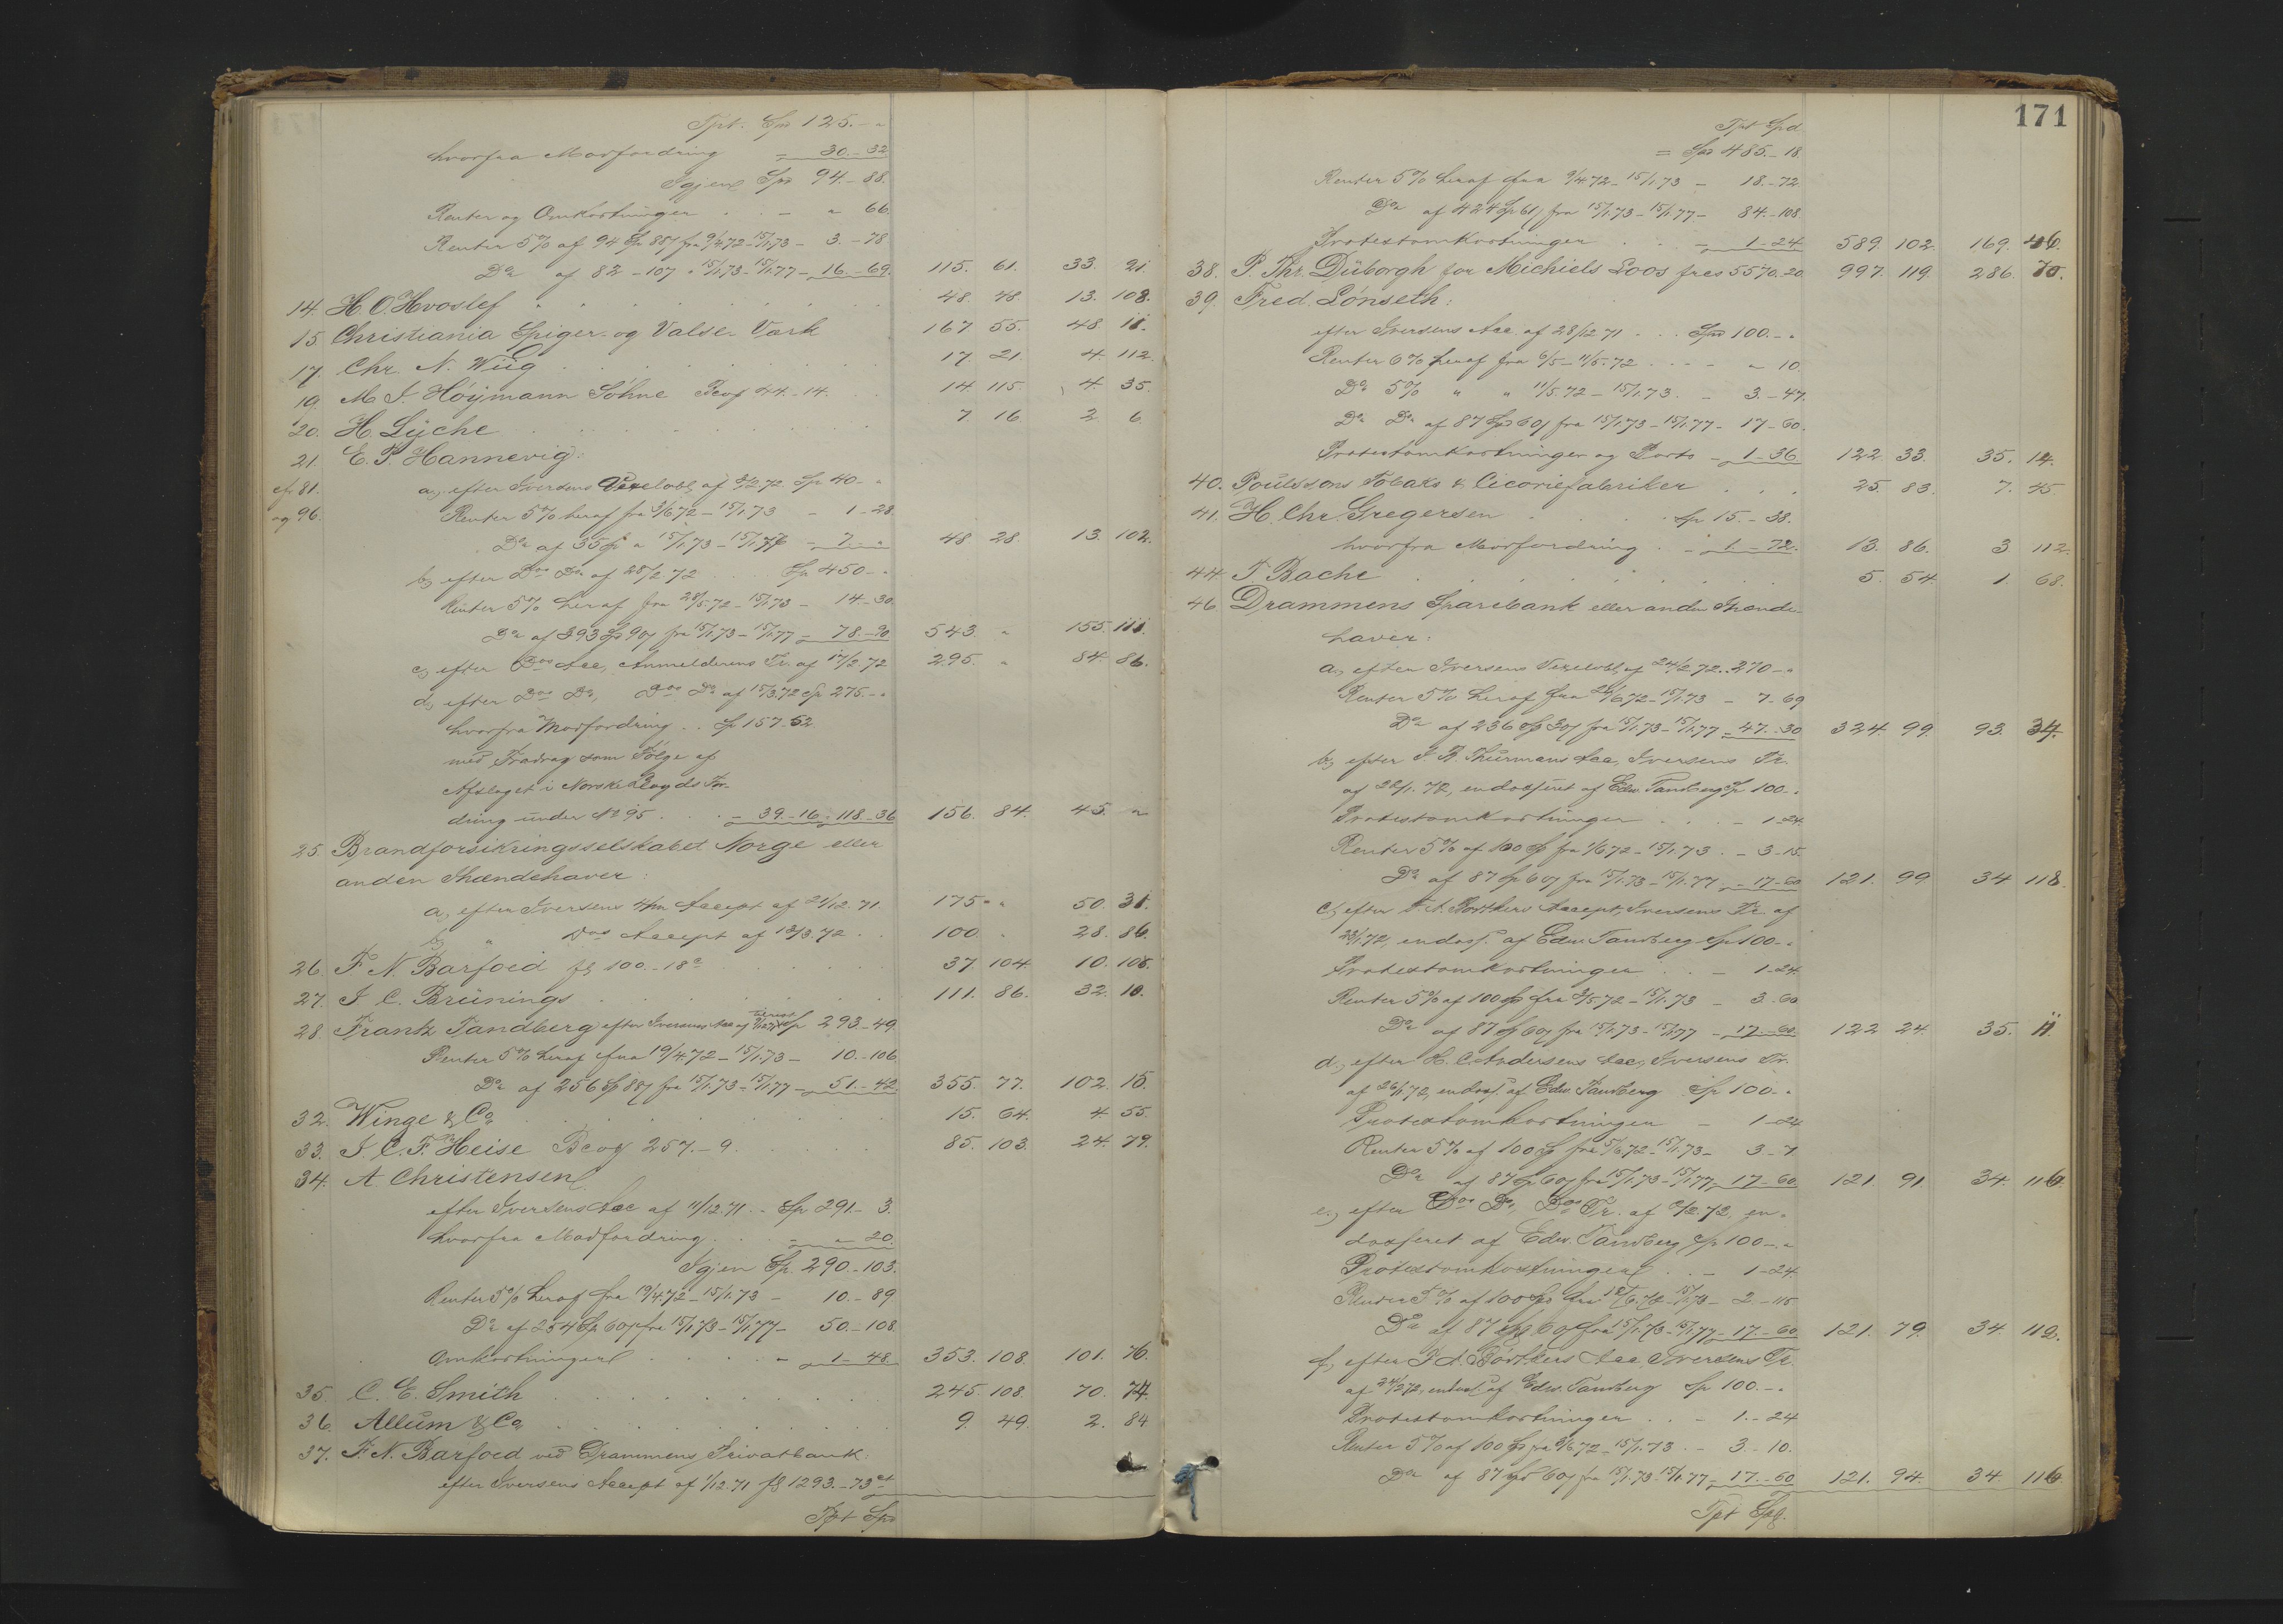 Tpt. Spd 125. - "
hvorfra Modfordring - 30. - 32
Igjen Spd 94. - 88.
Renter og Omkostninger . . - " 66.
Renter 5% af 94 Sp 88 ß fra 9/4 72 - 15/1 73 - 3. - 78
Do af 82 - 107 " 15/1 73 - 15/1 77 - 16. - 69. 115. 61. 33. 21.
14. H. O. Hvoslef 48. 48 13. 108.
15 Christiania Spiger- og Valse-Værk 167. 55. 48. 11.
17. Chr. N. Wiig 17. 21. 4. 112.
19. M. J. Höymann Söhne Bco ß 44. - 14. 14. 115. 4. 35.
20. H. Lyche 7 16 2 6.
21. E. P. Hannevig:
cfr 81. a, efter Iversens Vexelobl. af 3/2 72. Sp 40 - "
og 96. Renter 5% heraf fra 3/6 72 - 15/1 73 - 1 - 28.
Do af 35 Sp " 15/1 73 - 15/1 77 - 7. - " 48 28. 13. 102.
b, efter Dos Do af 28/2 72 Sp 450 - "
Renter 5% heraf fra 28/5 72 - 15/1 73 - 14. - 30.
Do af 393 Sp 90 ß fra 15/1 73 - 15/1 77 - 78. - 90 543. " 155. 111.
c, efter Dos Acc, Anmelderens Tr. af 17/2 72 295. " 84. 86.
d, efter Dos Do, Dos Do af 15/3 72 Sp 275. - "
hvorfra Modfordring . . Sp 157. 52
med Fradrag som Følge af
Afslaget i Norske Lloyds For-
dring under No 95 . . . - 39. - 16. 118. - 36 156. 84. 45. "
25. Brandforsikringsselskabet Norge eller
anden Ihændehaver:
a, efter Iversens 4/m Accept af 21/12. 71. 175. " 50. 31.
b, " Dos Accept af 13/3 72 . . 100. " 28. 86.
26. F. N. Barfoed fl 100. - 18 c 37. 104. 10. 108.
27. J. C. Brünings 111. 86. 32. 10.
28. Frantz Tandberg efter Iversens Acc af Sp 293. - 49.
Renter 5% heraf fra 19/4 72 - 15/1 73 - 10. - 106
Do af 256 Sp 88 ß fra 15/1 73 - 15/1 77 - 51. - 42 355. 77. 102. 15.
32. Winge & Co 15. 64. 4 55.
33. J. C. F. Heise Bco ß 257. - 9. 85. 103. 24. 79.
34. A. Christensen
efter Iversens Acc af 11/12. 71. - Sp 291. - 3.
hvorfra Modfordring . - " 20.
Igjen Sp. 290. - 103.
Renter 5% heraf fra 19/4 72 - 15/1 73 - 10. - 89
Do af 254 Sp 60 ß fra 15/1 73 - 15/1 77 - 50. - 108.
Omkostninger . . . . - 1 - 48. 353. 108. 101. 76.
35. C. E. Smith 245. 108. 70. 74.
36. Allum & Co 9. 49. 2. 84
37. F. N. Barfoed ved Drammens Privatbank:
efter Iversens Accept af 1/12. 71 fl 1293. - 73 ct
Tpt Spd
171
Tpt Spd
= Spd 485. - 18.
Renter 5% heraf fra 9/4 72 - 15/1 73 - 18. - 72
Do af 424 Sp 61 ß fra 15/1 73 - 15/1 77 - 84. - 108.
Protestomkostninger . . . - 1 - 24 589. 102. 169. 46.
38. P. Thr. Düborgh for Michiels Loos frcs 5570. 20 997. 119. 286. 70.
39. Fred. Lönseth:
efter Iversens Acc. af 28/12 71 . . . Spd 100. - "
Renter 6% heraf fra 6/5 - 11/5. 72 . . - - " 10.
Do 5% " " 11/5. 72 - 15/1. 73. - 3. - 47.
Do Do af 87 Sp 60 ß fra 15/1 73 - 15/1 77 - 17 - 60.
Protestomkostninger og Porto - 1 - 36. 122. 33. 35. 14.
40. Poulssons Tobaks & Cicoriefabriker 25. 83. 7. 45
41. H. Chr. Gregersen . . . Sp 15. - 38.
hvorfra Modfordring . - 1. - 72. 13. 86. 3 112.
44. T. Bache 5. 54. 1. 68.
46. Drammens Sparebank eller anden Ihænde-
haver:
a, efter Iversens Vexelobl. af 24/2 72. . 270 - "
Renter 5% heraf fra 24/6 72 - 15/1. 73 - 7 - 69
Do af 236 Sp 30 ß fra 15/1 73 - 15/1 77 - 47. - 30 324. 99. 93. 34.
b, efter J. B. Thurmans Acc, Iversens Tr.
af 22/1. 72, endosseret af Edw. Tandberg Sp 100. "
Protestomkostninger . . . - 1 - 24.
Renter 5% af 100 Sp fra 1/6 72 - 15/1. 73 . - 3 - 15.
Do af 87 Sp 60 ß fra 15/1. 73 - 15/1. 77 - 17 - 60 121. 99. 34 118.
c, efter Accept, Iversens Tr. af
23/1. 72, endoss. af Edw. Tandberg Sp 100 - "
Protestomkostninger . . - 1 - 24.
Renter 5% af 100 Sp fra 3/5 72 - 15/1. 73 - 3. 60
Do af 87 Sp 60 ß fra 15/1. 73 - 15/1 77 - 17. - 60. 122 24. 35. 11.
d, efter H. C. Andersens Acc, Iversens Tr.
af 26/1. 72, endoss. af Edw. Tandberg Sp 100 - "
Protestomkostninger - 1 - 24
Renter 5% af 100 Sp fra 15/1. 73 - 3 - 7.
Do af 87 Sp 60 ß fra 15/1 73 - 15/1 77 - 17 - 60. 121. 91. 34. 116.
e, efter Dos Do, Dos Tr. af 72, en-
dosseret af Edw. Tandberg Sp 100 - "
Protestomkostninger . . - 1 - 24
Renter 5% af 100 Sp fra 15/1. 73 - 2. - 115
Do af 87 Sp 60 ß fra 15/1. 73 - 15/1. 77 - 17. - 60. 121. 79. 34 112.
f, efter Acc, Iversens Tr.
af 24/2 72, endoss. af Edw. Tandberg Sp 100. - "
Protestomkostninger . . - 1. - 24
Renter 5% af 100 Sp fra 72 - 15/1. 73 . - 3. - 10.
Do af 87 Sp 60 ß fra 15/1. 73 15/1. 77 - 17. - 60 121. 94. 34. 116.
Tpt Spd.